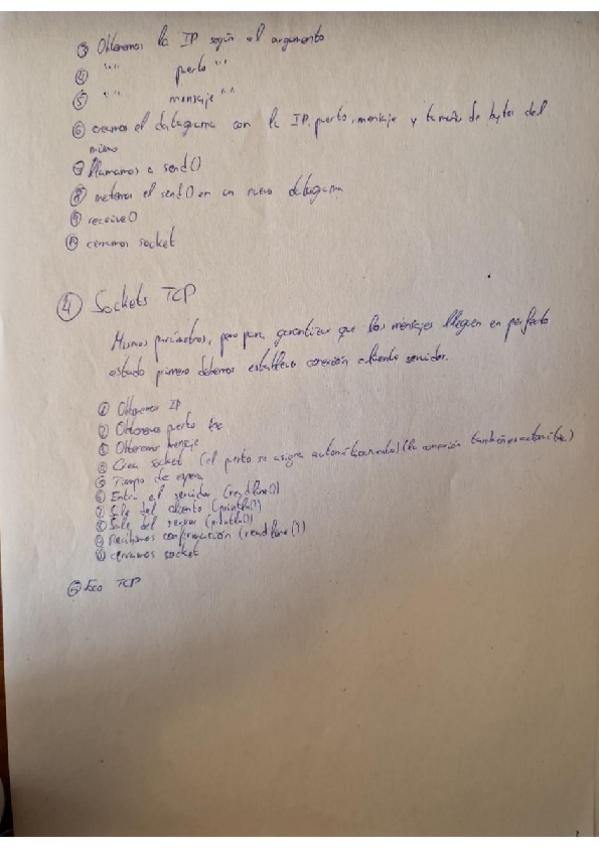 ③ Obtenemos la IP según el argumento
④ "" puerto ""
⑤ "" mensaje ""
⑥ creamos el datagrama con la IP, puerto, mensaje y tamaño de bytes del
mismo
⑦ llamamos a send()
⑧ metemos el send() en un nuevo datagrama
⑨ receive()
⑩ cerramos socket
④ Sockets TCP
Mismos parámetros, pero para garantizar que los mensajes lleguen en perfecto
estado primero debemos establecer conexión cliente servidor.
① Obtenemos IP
② Obtenemos puerto
③ Obtenemos mensaje
④ Crea socket (el puerto se asigna automáticamente) (la conexión también es automática)
⑤ Tiempo de espera
⑥ Entra al servidor (readline())
⑦ Sale del cliente (println())
⑧ Sale del server (println())
⑨ Recibimos confirmación (readline())
⑩ cerramos socket
⑤ Eco TCP